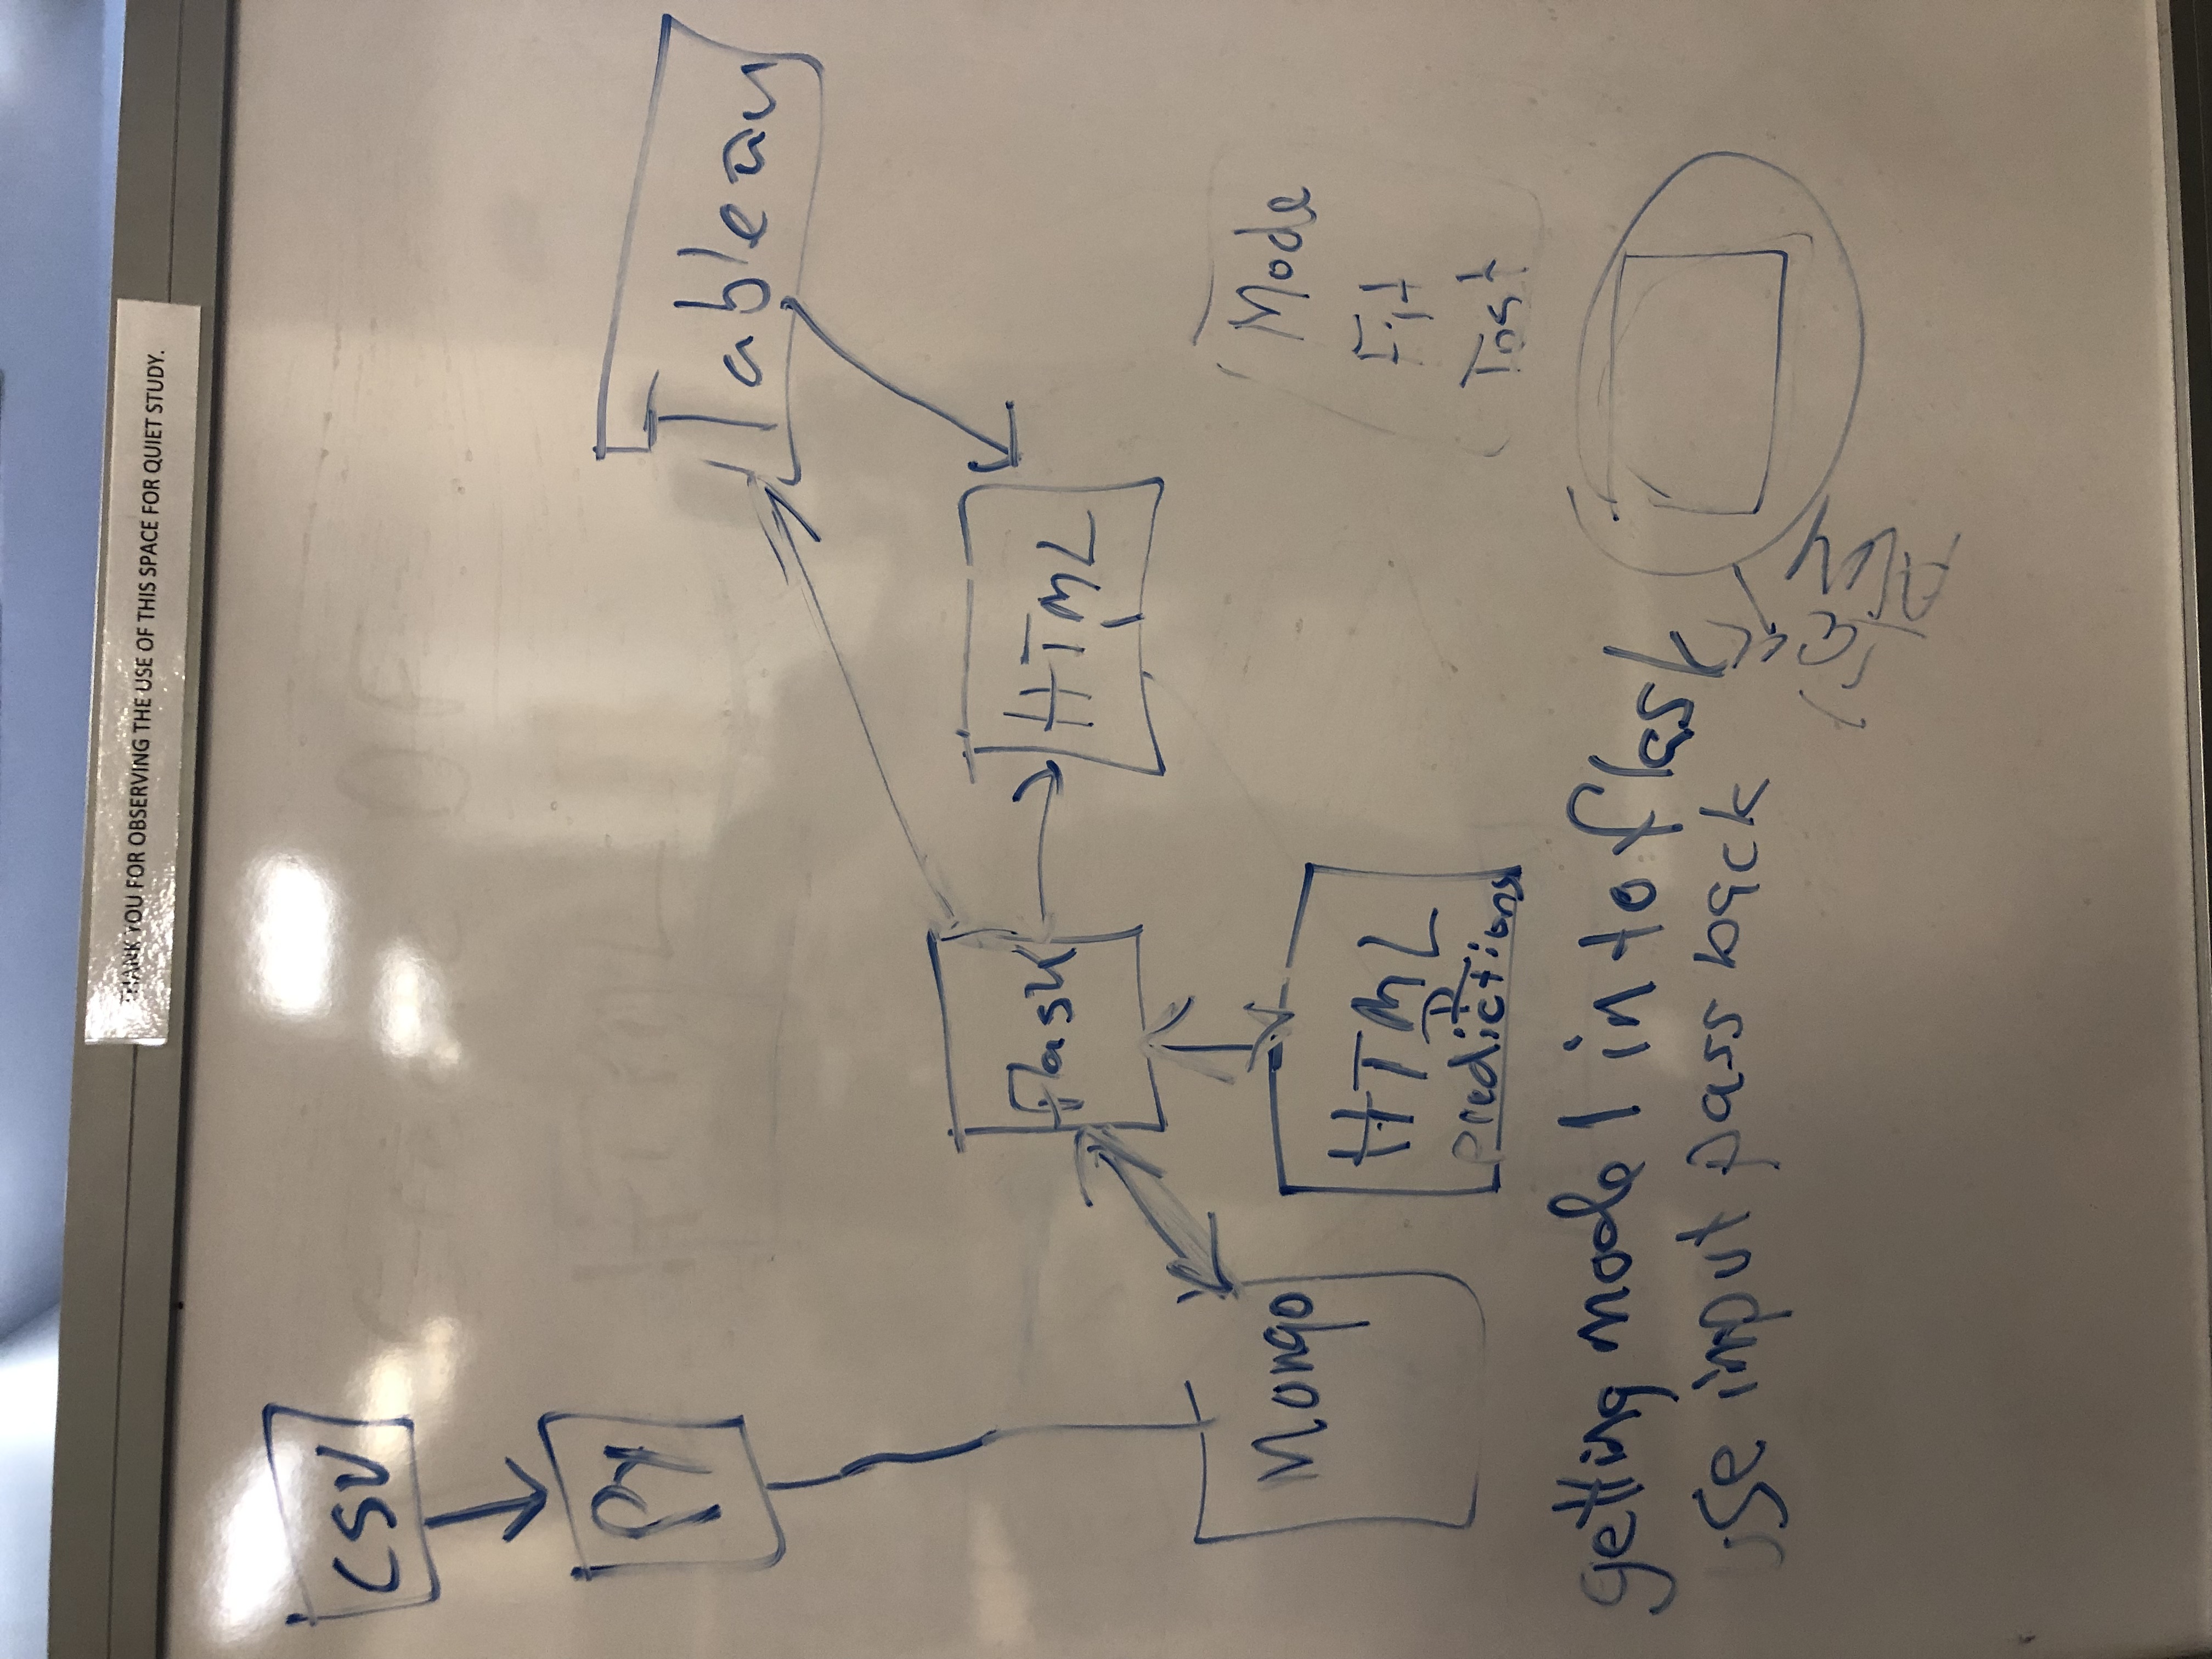 THANK YOU FOR OBSERVING THE USE OF THIS SPACE FOR QUIET STUDY.
CSV
PY
Tableau
Flask
HTML
Mongo
HTML
predictions
Mode
Fit
Test
getting model in to flask
use input pass back